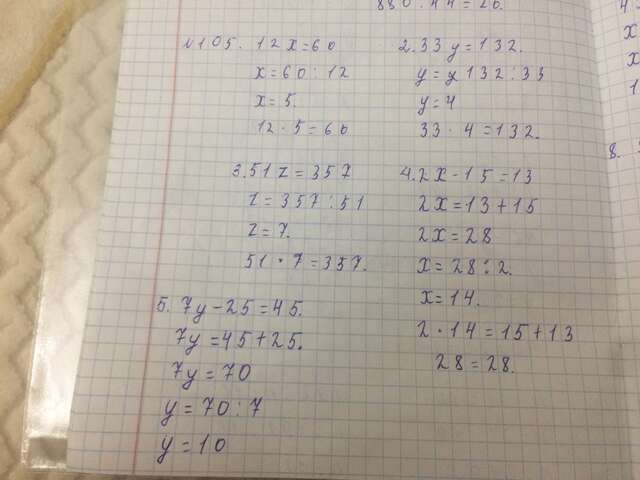 №105. 12x=60
x=60:12
x=5.
12·5=60
2. 33y=132.
y=132:33
y=4
33·4=132.
3. 51z=357
z=357:51
z=7.
51·7=357.
4. 2x-15=13
2x=13+15
2x=28
x=28:2.
x=14.
2·14=15+13
28=28.
5. 7y-25=45.
7y=45+25.
7y=70
y=70:7
y=10
8.